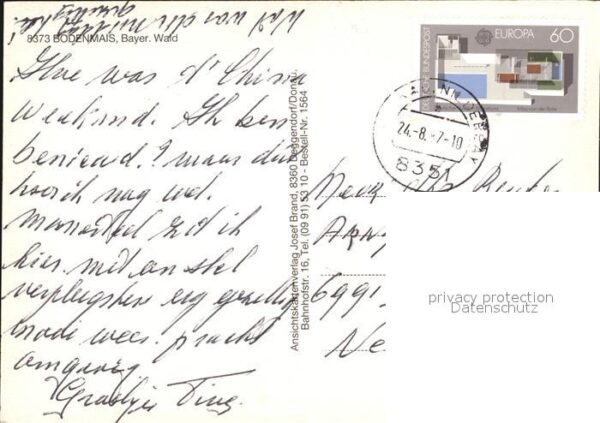 8373 BODENMAIS, Bayer. Wald
Hoe was d' China
Weekend. Ik ben
benieuwd? maar dat
hoor ik nog wel.
Momenteel zit ik
hier met een stel
verpleegsters erg gezellig
mooi weer. pracht
omgeving
Groetjes Tiny
Ansichtskartenverlag Josef Brand, 8360 Deggendorf/Donau,
Bahnhofstr. 16, Tel. (09 91) 53 10 - Bestell-Nr. 1564
DEUTSCHE BUNDESPOST
EUROPA 60
24.-8.-7-10
8351
6991
Ne
privacy protection
Datenschutz